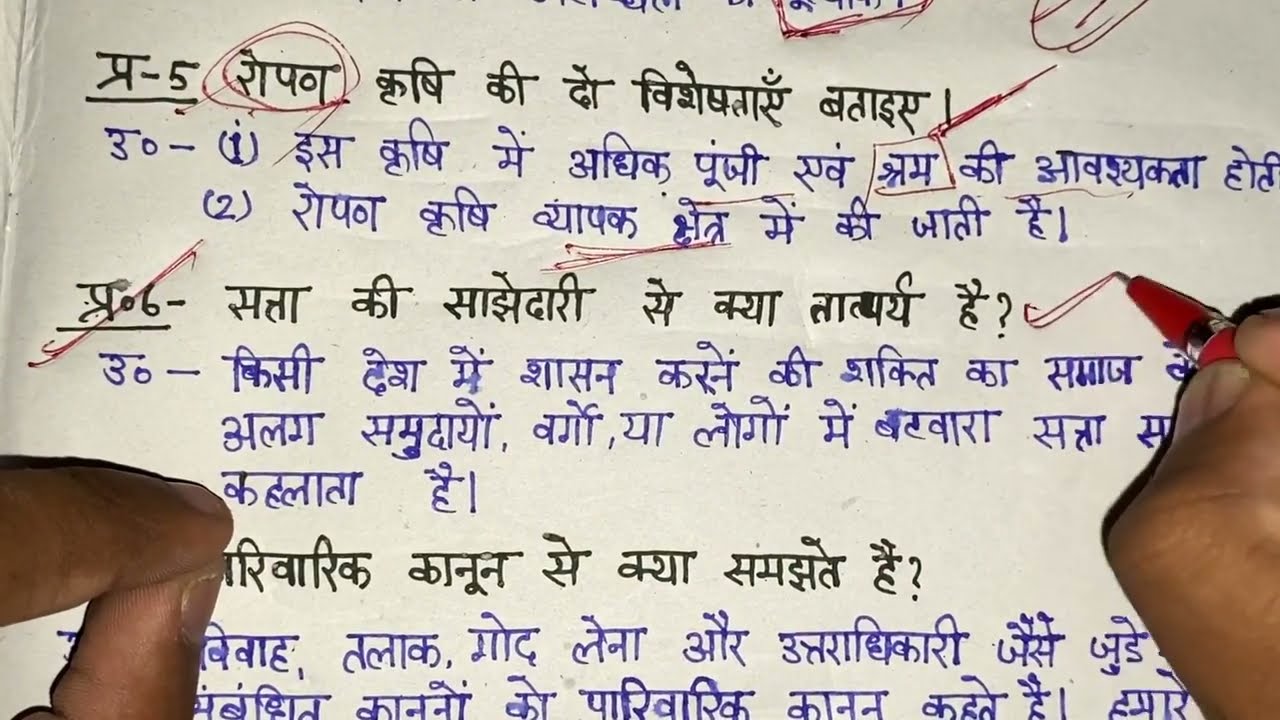 प्र-5 रोपण कृषि की दो विशेषताएँ बताइए।
उ०- (1) इस कृषि में अधिक पूंजी एवं श्रम की आवश्यकता होती
(2) रोपण कृषि व्यापक क्षेत्र में की जाती है।
प्र०6- सत्ता की साझेदारी से क्या तात्पर्य है?
उ०- किसी देश में शासन करनें की शक्ति का समाज के
अलग समुदायों, वर्गो, या लोगों में बटवारा सत्ता
कहलाता है।
पारिवारिक कानून से क्या समझते है?
विवाह, तलाक, गोद लेना और उत्तराधिकारी जैसे जुडे
संबंधित कानूनों को पारिवारिक कानून कहते है। हमारे